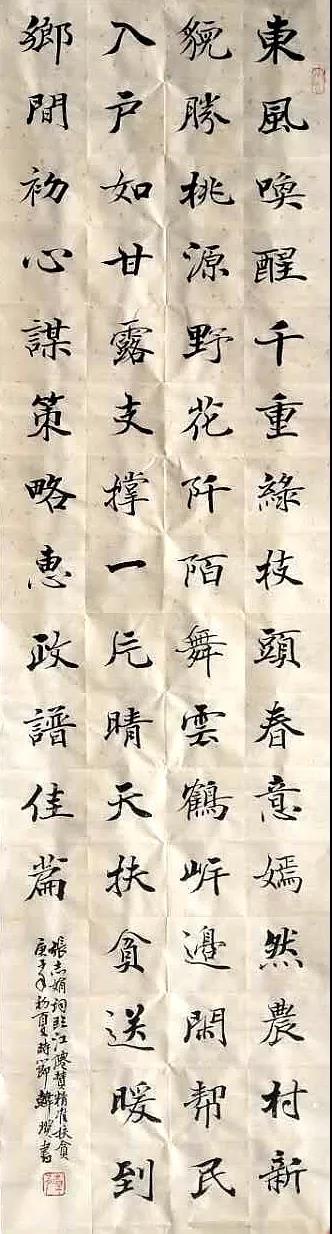 東風喚醒千重綠枝頭春意嫣然農村新
貌勝桃源野花阡陌舞雲鶴岸邊閑帮民
入户如甘露支撐一片晴天扶貧送暖到
鄉間初心謀策略惠政譜佳篇
張志娟詞臨江僊贊精准扶貧
庚子年初夏時節韓書